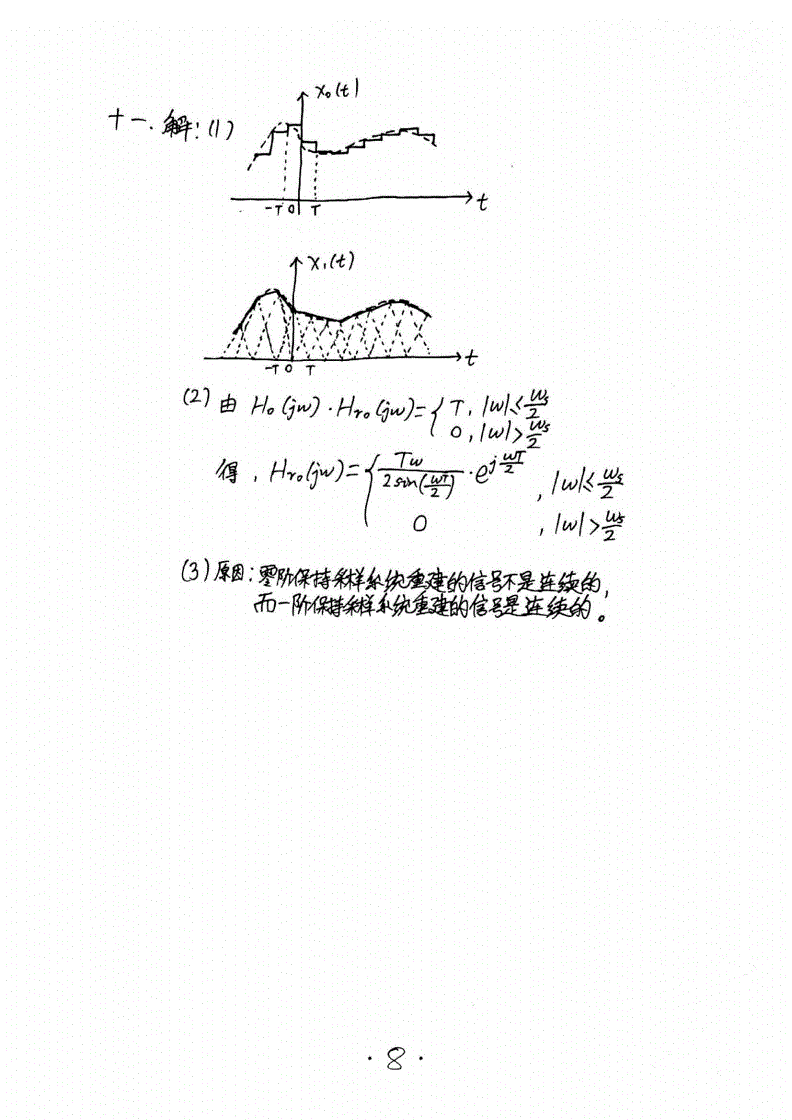 十一. 解: (1)
x₀(t)
-T 0 T t
x₁(t)
-T 0 T t
(2) 由 H₀(jw)·Hr₀(jw)={ T, |w|≤ws/2
0, |w|>ws/2
得, Hr₀(jw)={ Tw/(2sin(wT/2))·e^(j wT/2), |w|≤ws/2
0, |w|>ws/2
(3) 原因: 零阶保持采样系统重建的信号不是连续的,
而一阶保持采样系统重建的信号是连续的。
·8·